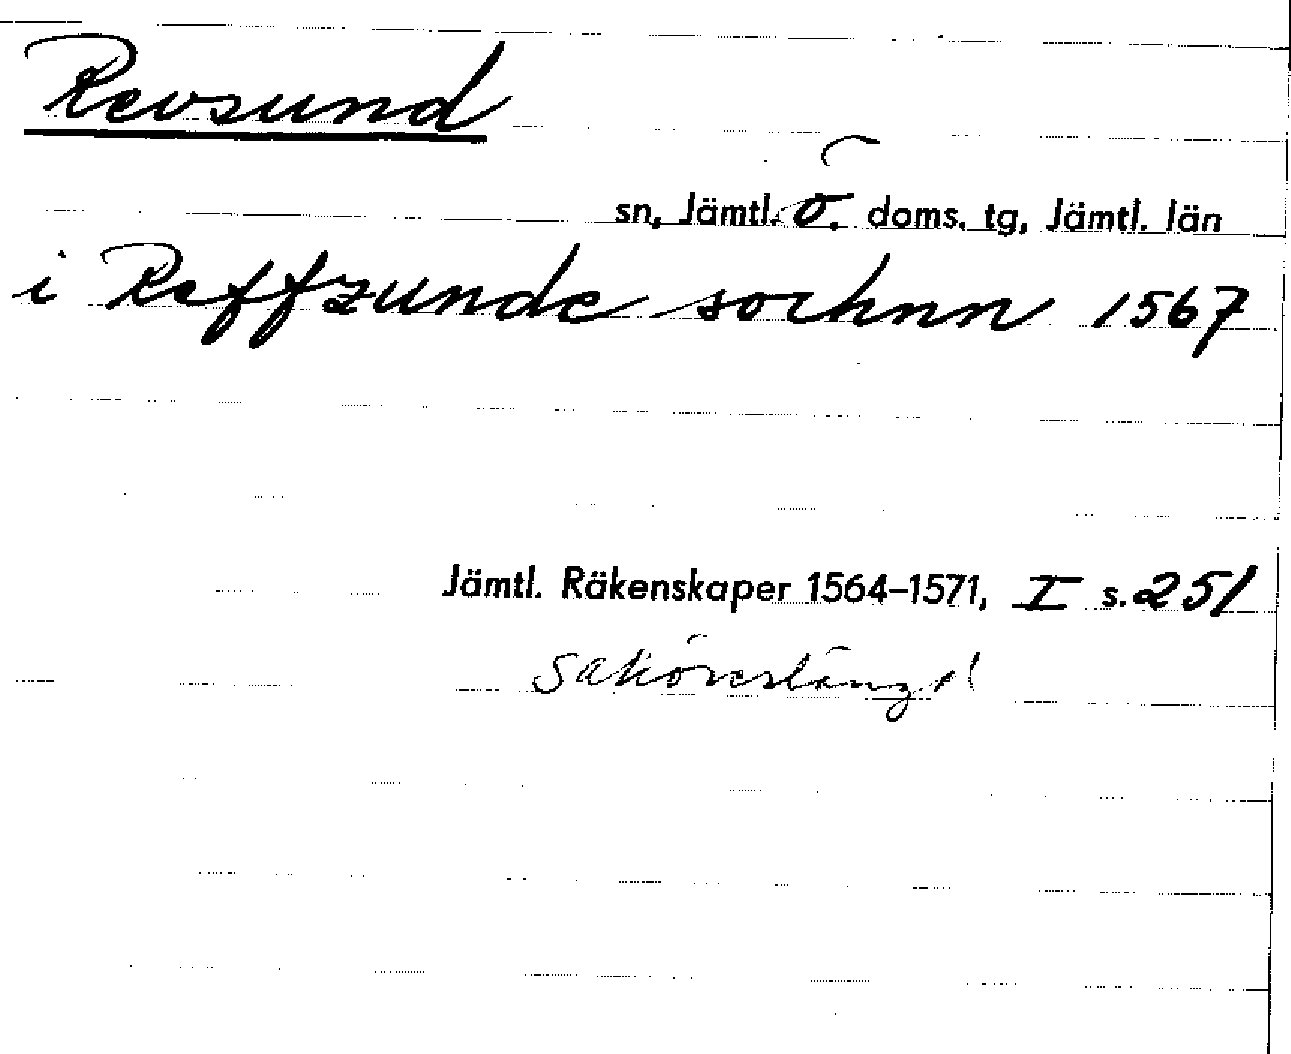 Revsund
sn, Jämtl. ö. doms. tg, Jämtl. län
i Reffzunde sochnn 1567
Jämtl. Räkenskaper 1564–1571, I s. 251
Saköreslängd